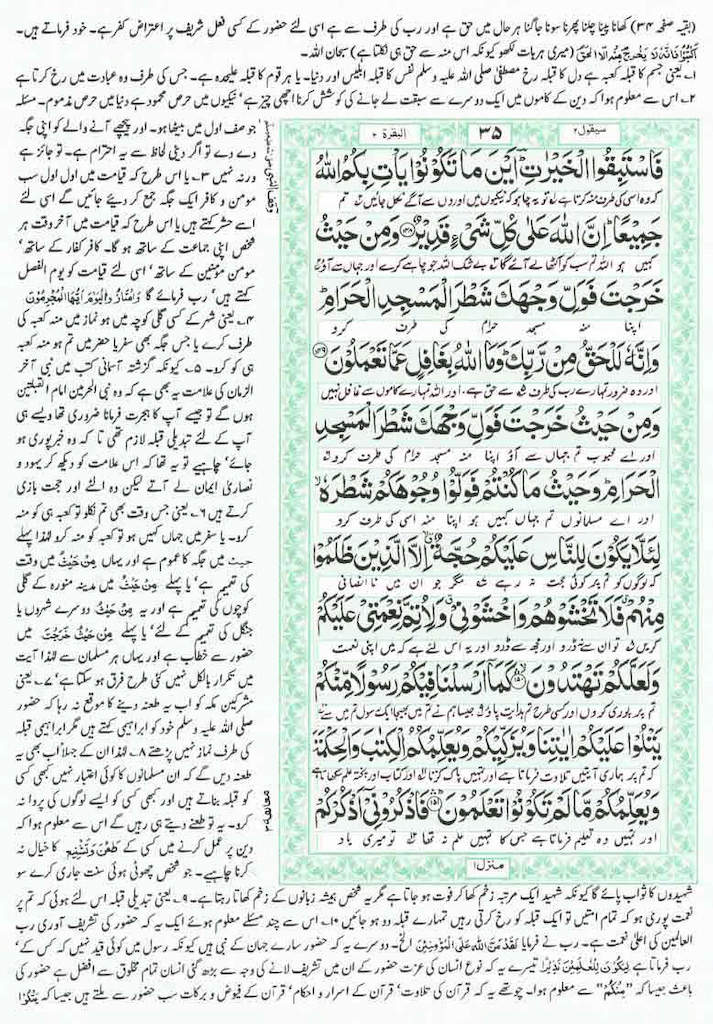 (بقیہ صفحہ ۳۴) کھانا پینا چلنا پھرنا سونا جاگنا ہر حال میں حق ہے اور رب کی طرف سے ہے اسی لئے حضور کے کسی فعل شریف پر اعتراض کفر ہے۔ خود فرماتے ہیں۔
(میری ہر بات لکھو کیونکہ اس منہ سے حق ہی نکلتا ہے) سبحان اللہ۔
۱۔ یعنی جسم کا قبلہ کعبہ ہے دل کا قبلہ رخ مصطفیٰ صلی اللہ علیہ وسلم نفس کا قبلہ ابلیس اور دنیا۔ یا ہر قوم کا قبلہ علیحدہ ہے۔ جس کی طرف وہ عبادت میں رخ کرتا ہے
۲۔ اس سے معلوم ہوا کہ دین کے کاموں میں ایک دوسرے سے سبقت لے جانے کی کوشش کرنا اچھی چیز ہے' نیکیوں میں حرص محمود ہے دنیا میں حرص مذموم۔ مسئلہ
سیقول ۲
۳۵
البقرۃ ۲
فَاسْتَبِقُوا الْخَيْرٰتِ ؕ اَيْنَ مَا تَكُوْنُوْا يَاْتِ بِكُمُ اللّٰهُ
کہ وہ اسی کی طرف منہ کرتا ہے تو یہ چاہو کہ نیکیوں میں اوروں سے آگے نکل جائیں تم
جَمِيْعًا ؕ اِنَّ اللّٰهَ عَلٰى كُلِّ شَىْءٍ قَدِيْرٌ ﴿۱۴۸﴾ وَمِنْ حَيْثُ
کہیں ہو اللہ تم سب کو اکٹھا لے آئے گا بے شک اللہ جو چاہے کرے اور جہاں سے آؤ
خَرَجْتَ فَوَلِّ وَجْهَكَ شَطْرَ الْمَسْجِدِ الْحَرَامِ ؕ
اپنا منہ مسجد حرام کی طرف کرو
وَاِنَّهٗ لَلْحَقُّ مِنْ رَّبِّكَ ؕ وَمَا اللّٰهُ بِغَافِلٍ عَمَّا تَعْمَلُوْنَ ﴿۱۴۹﴾
اور وہ ضرور تمہارے رب کی طرف سے حق ہے۔ اور اللہ تمہارے کاموں سے غافل نہیں
وَمِنْ حَيْثُ خَرَجْتَ فَوَلِّ وَجْهَكَ شَطْرَ الْمَسْجِدِ
اور اے محبوب تم جہاں سے آؤ اپنا منہ مسجد حرام کی طرف کرو
الْحَرَامِ ؕ وَحَيْثُ مَا كُنْتُمْ فَوَلُّوْا وُجُوْهَكُمْ شَطْرَهٗ ۙ
اور اے مسلمانوں تم جہاں کہیں ہو اپنا منہ اسی کی طرف کرو
لِئَلَّا يَكُوْنَ لِلنَّاسِ عَلَيْكُمْ حُجَّةٌ ۙ اِلَّا الَّذِيْنَ ظَلَمُوْا
کہ لوگوں کو تم پر کوئی حجت نہ رہے مگر جو ان میں ناانصافی
مِنْهُمْ ۗ فَلَا تَخْشَوْهُمْ وَاخْشَوْنِىْ ۗ وَلِاُتِمَّ نِعْمَتِىْ عَلَيْكُمْ
کریں تو ان سے نہ ڈرو اور مجھ سے ڈرو اور یہ اس لئے ہے کہ میں اپنی نعمت
وَلَعَلَّكُمْ تَهْتَدُوْنَ ﴿۱۵۰﴾ كَمَآ اَرْسَلْنَا فِيْكُمْ رَسُوْلًا مِّنْكُمْ
تم پر پوری کروں اور کسی طرح تم ہدایت پاؤ جیسا ہم نے تم میں بھیجا ایک رسول تم میں سے
يَتْلُوْا عَلَيْكُمْ اٰيٰتِنَا وَيُزَكِّيْكُمْ وَيُعَلِّمُكُمُ الْكِتٰبَ وَالْحِكْمَةَ
کہ تم پر ہماری آیتیں تلاوت فرماتا ہے اور تمہیں پاک کرتا اور کتاب اور پختہ علم سکھاتا ہے
وَيُعَلِّمُكُمْ مَّا لَمْ تَكُوْنُوْا تَعْلَمُوْنَ ﴿۱۵۱﴾ فَاذْكُرُوْنِىْٓ اَذْكُرْكُمْ
اور تمہیں وہ تعلیم فرماتا ہے جس کا تمہیں علم نہ تھا تو میری یاد
منزل ۱
جو صف اول میں بیٹھا ہو۔ اور پیچھے آنے والے کو اپنی جگہ
دے دے تو اگر دینی لحاظ سے یہ احترام ہے۔ تو جائز ہے
ورنہ نہیں ۳۔ یا اس طرح کہ قیامت میں اول اول سب
مومن و کافر ایک جگہ جمع کر دیئے جائیں گے اسی لئے
اسے حشر کہتے ہیں یا اس طرح کہ قیامت میں آخر وقت ہر
شخص اپنی جماعت کے ساتھ ہو گا۔ کافر کفار کے ساتھ'
مومن مؤمنین کے ساتھ' اسی لئے قیامت کو یوم الفصل
کہتے ہیں' رب فرمائے گا وَامْتَازُوا الْيَوْمَ اَيُّهَا الْمُجْرِمُوْنَ
۴۔ یعنی شہر کے کسی گلی کوچہ میں ہو نماز میں منہ کعبہ کی
طرف کرے یا جس جگہ بھی سفر یا حضر میں تم ہو منہ کعبہ
ہی کو کرو۔ ۵۔ کیونکہ گزشتہ آسمانی کتب میں نبی آخر
الزمان کی علامت یہ بھی ہے کہ وہ نبی الحرمین امام القبلتین
ہوں گے تو جیسے آپ کا ہجرت فرمانا ضروری تھا ویسے ہی
آپ کے لئے تبدیلی قبلہ لازم تھی تا کہ وہ خبر پوری ہو
جائے' چاہیے تو یہ تھا کہ اس علامت کو دیکھ کر یہود و
نصاریٰ ایمان لے آتے لیکن وہ الٹے اور حجت بازی
کرتے ہیں ۶۔ یعنی جس وقت بھی تم نکلو تو کعبہ ہی کو منہ
کرو۔ یا سفر میں جہاں کہیں ہو تو کعبہ کو منہ کرو لہٰذا پہلے
حیث میں جگہ کا عموم ہے اور یہاں مِنْ حَيْثُ میں وقت
کی تعمیم ہے' یا پہلے مِنْ حَيْثُ میں مدینہ منورہ کے گلی
کوچوں کی تعمیم ہے اور یہ مِنْ حَيْثُ دوسرے شہروں یا
جنگل کی تعمیم کے لئے' یا پہلے مِنْ حَيْثُ خَرَجْتَ میں
حضور سے خطاب ہے اور یہاں ہر مسلمان سے لہٰذا آیت
میں تکرار بالکل نہیں کئی طرح فرق ہو سکتا ہے' ۷۔ یعنی
مشرکین مکہ کو اب یہ طعنہ دینے کا موقع نہ رہا کہ حضور
صلی اللہ علیہ وسلم خود کو ابراہیمی کہتے ہیں مگر ابراہیمی قبلہ
کی طرف نماز نہیں پڑھتے ۸۔ لہٰذا ان کے جہلاء اب بھی یہ
طعنہ دیں گے کہ ان مسلمانوں کا کوئی اعتبار نہیں کبھی کسی
کو قبلہ بناتے ہیں اور کبھی کسی کو ایسے لوگوں کی پروا نہ
کرو۔ یہ تو طعنے دیتے ہی رہیں گے اس سے معلوم ہوا کہ
دین پر عمل کرنے میں کسی کے طعن و تشنیع کا خیال نہ
کرنا چاہیے۔ جو شخص چھوٹی ہوئی سنت جاری کرے سو
شہیدوں کا ثواب پائے گا کیونکہ شہید ایک مرتبہ زخم کھا کر فوت ہو جاتا ہے مگر یہ شخص ہمیشہ زبانوں کے زخم کھاتا رہتا ہے۔ ۹۔ یعنی تبدیلی قبلہ اس لئے ہوئی کہ تم پر
نعمت پوری ہو کہ تمام امتیں تو ایک قبلہ کو رخ کرتی رہیں تمہارے قبلہ دو ہو جائیں ۱۰۔ اس سے چند مسئلے معلوم ہوئے ایک یہ کہ حضور کی تشریف آوری رب
العالمین کی اعلیٰ نعمت ہے۔ رب نے فرمایا لَقَدْ مَنَّ اللّٰهُ عَلَى الْمُؤْمِنِيْنَ الخ۔ دوسرے یہ کہ حضور سارے جہان کے نبی ہیں کیونکہ رسول میں کوئی قید نہیں کہ کس کے'
رب فرماتا ہے لِيَكُوْنَ لِلْعٰلَمِيْنَ نَذِيْرًا تیسرے یہ کہ نوع انسان کی عزت حضور کے ان میں تشریف لانے کی وجہ سے بڑھ گئی انسان تمام مخلوق سے افضل ہے حضور کی
باعث جیسا کہ "مِنْكُمْ" سے معلوم ہوا۔ چوتھے یہ کہ قرآن کی تلاوت' قرآن کے اسرار و احکام' قرآن کے فیوض و برکات سب حضور سے ملتے ہیں جیسا کہ يَتْلُوْا